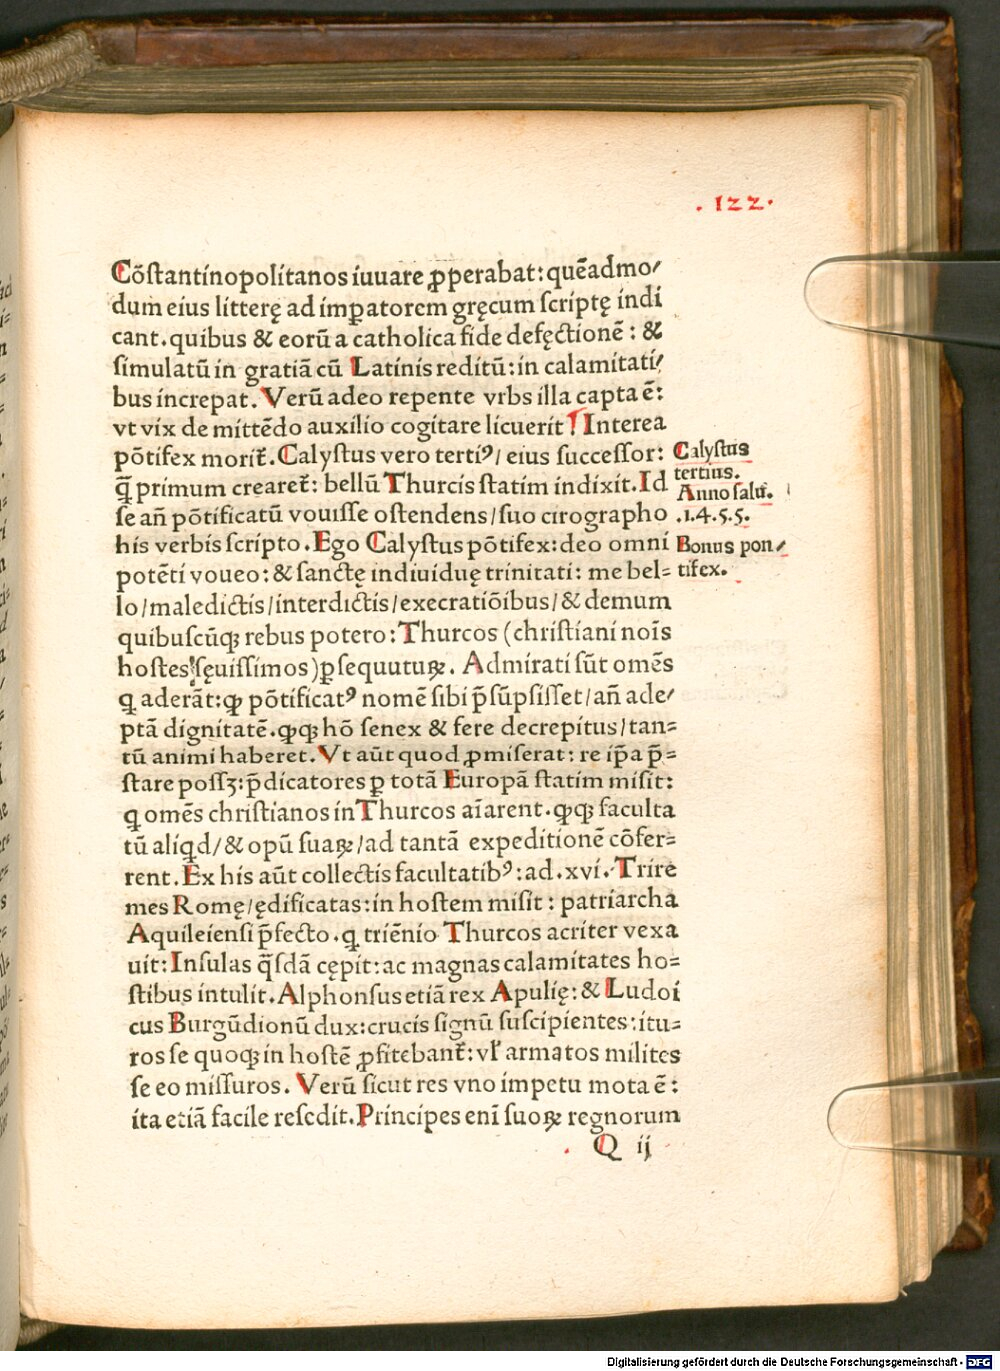 . 122.
Cõstantinopolitanos iuuare ꝓperabat: quẽadmo/
dum eius litterę ad imꝑatorem gręcum scriptę indi
cant. quibus & eorũ a catholica fide defęctionẽ: &
simulatũ in gratiã cũ Latinis reditũ: in calamitati/
bus increpat. Verũ adeo repente vrbs illa capta ẽ:
vt vix de mittẽdo auxilio cogitare licuerit Interea
põtifex morit̃. Calystus vero tertiꝰ/ eius successor:
q̃ primum crearet̃: bellũ Thurcis statim indixit. Id
se añ põtificatũ vouisse ostendens/ suo cirographo
his verbis scripto. Ego Calystus põtifex: deo omni
potẽti voueo: & sanctę indiuiduę trinitati: me bel=
lo/ maledictis/ interdictis/ execratiõibus/ & demum
quibuscũqꝫ rebus potero: Thurcos (christiani nois̃
hostes sęuissimos) ꝑsequutuꝝ. Admirati sũt omẽs
q̣ aderãt: ꝙ põtificatꝰ nomẽ sibi p̃sũpsisset/ añ ade/
ptã dignitatẽ. ꝙqꝫ hõ senex & fere decrepitus/ tan=
tũ animi haberet. Vt aũt quod ꝓmiserat: re ip̃a p̃=
stare possꝫ: p̃dicatores ꝑ totã Europã statim misit:
q omẽs christianos in Thurcos aĩarent. ꝙqꝫ faculta
tũ aliqd/ & opũ suaꝝ/ ad tantã expeditionẽ cõfer=
rent. Ex his aũt collectis facultatibꝰ: ad .xvi. Trire
mes Romę/ ędificatas: in hostem misit: patriarcha
Aquileiensi p̃fecto. q triẽnio Thurcos acriter vexa
uit: Insulas q̃sdã cępit: ac magnas calamitates ho=
stibus intulit. Alphonsus etiã rex Apulię: & Ludoi
cus Burgũdionũ dux: crucis signũ suscipientes: itu=
ros se quoqꝫ in hostẽ ꝓfitebant̃: vl̃ armatos milites
se eo missuros. Verũ sicut res vno impetu mota ẽ:
ita etiã facile resedit. Principes enĩ suoꝝ regnorum
Q ij
Calystus
tertius.
Anno salut̃.
.1.4.5.5.
Bonus pon/
tifex.
Digitalisierung gefördert durch die Deutsche Forschungsgemeinschaft - DFG